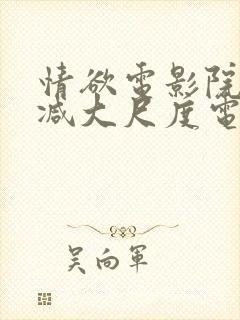 情欲電影院
减大尺度電
吴向軍